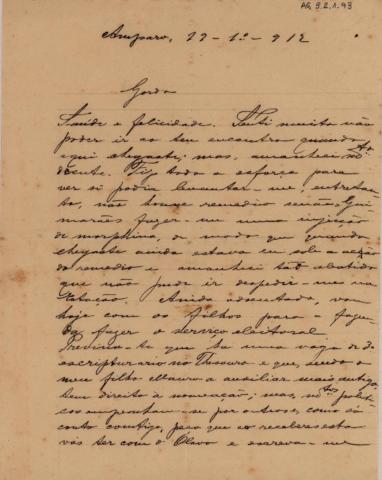 AG 9.2.1.93
Amparo, 22-1º-912
Gordo
Saude e felicidade. Senti muito não
poder ir ao teu encontro quando
aqui chegaste; mas, amanheci mto
doente. Fiz todo o esforço para
ver si podia levantar-me, entretan-
to, não houve remedio senão o Gui-
marães fazer-me uma injecção
de morphina, de modo que quando
chegaste ainda estava eu sob a acção
do remedio e amanheci tão abatido
que não pude ir despedir-me na
Estação. Ainda adoentado, vou
hoje com os filhos para a fazen-
da fazer o serviço eleitoral
que ha uma vaga de
escripturario no Thesouro e que, sendo o
meu filho Mauro o auxiliar mais antigo,
tem direito á nomeação; mas, mtos politi-
cos empenham-se por outros e, como só
conto comtigo, peço que ao receberes esta
vás ter com o Olavo e escreva-me